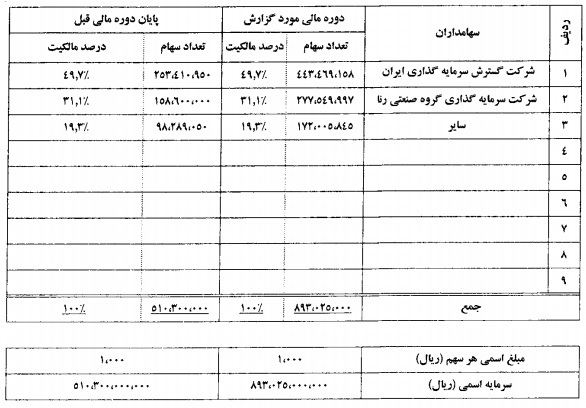 ردیف سهامداران دوره مالی مورد گزارش پایان دوره مالی قبل
تعداد سهام درصد مالکیت تعداد سهام درصد مالکیت
۱ شرکت گسترش سرمایه گذاری ایران ۴۴۳،۴۶۹،۱۵۸ ۴۹,۷٪ ۲۵۳،۴۱۰،۹۵۰ ۴۹,۷٪
۲ شرکت سرمایه گذاری گروه صنعتی رنا ۲۷۷،۵۴۹،۹۹۷ ۳۱,۱٪ ۱۵۸،۶۰۰،۰۰۰ ۳۱,۱٪
۳ سایر ۱۷۲،۰۰۵،۸۴۵ ۱۹,۳٪ ۹۸،۲۸۹،۰۵۰ ۱۹,۳٪
۴
۵
۶
۷
۸
۹
جمع ۸۹۳،۰۲۵،۰۰۰ ۱۰۰٪ ۵۱۰،۳۰۰،۰۰۰ ۱۰۰٪
مبلغ اسمی هر سهم (ریال) ۱،۰۰۰ ۱،۰۰۰
سرمایه اسمی (ریال) ۸۹۳،۰۲۵،۰۰۰،۰۰۰ ۵۱۰،۳۰۰،۰۰۰،۰۰۰